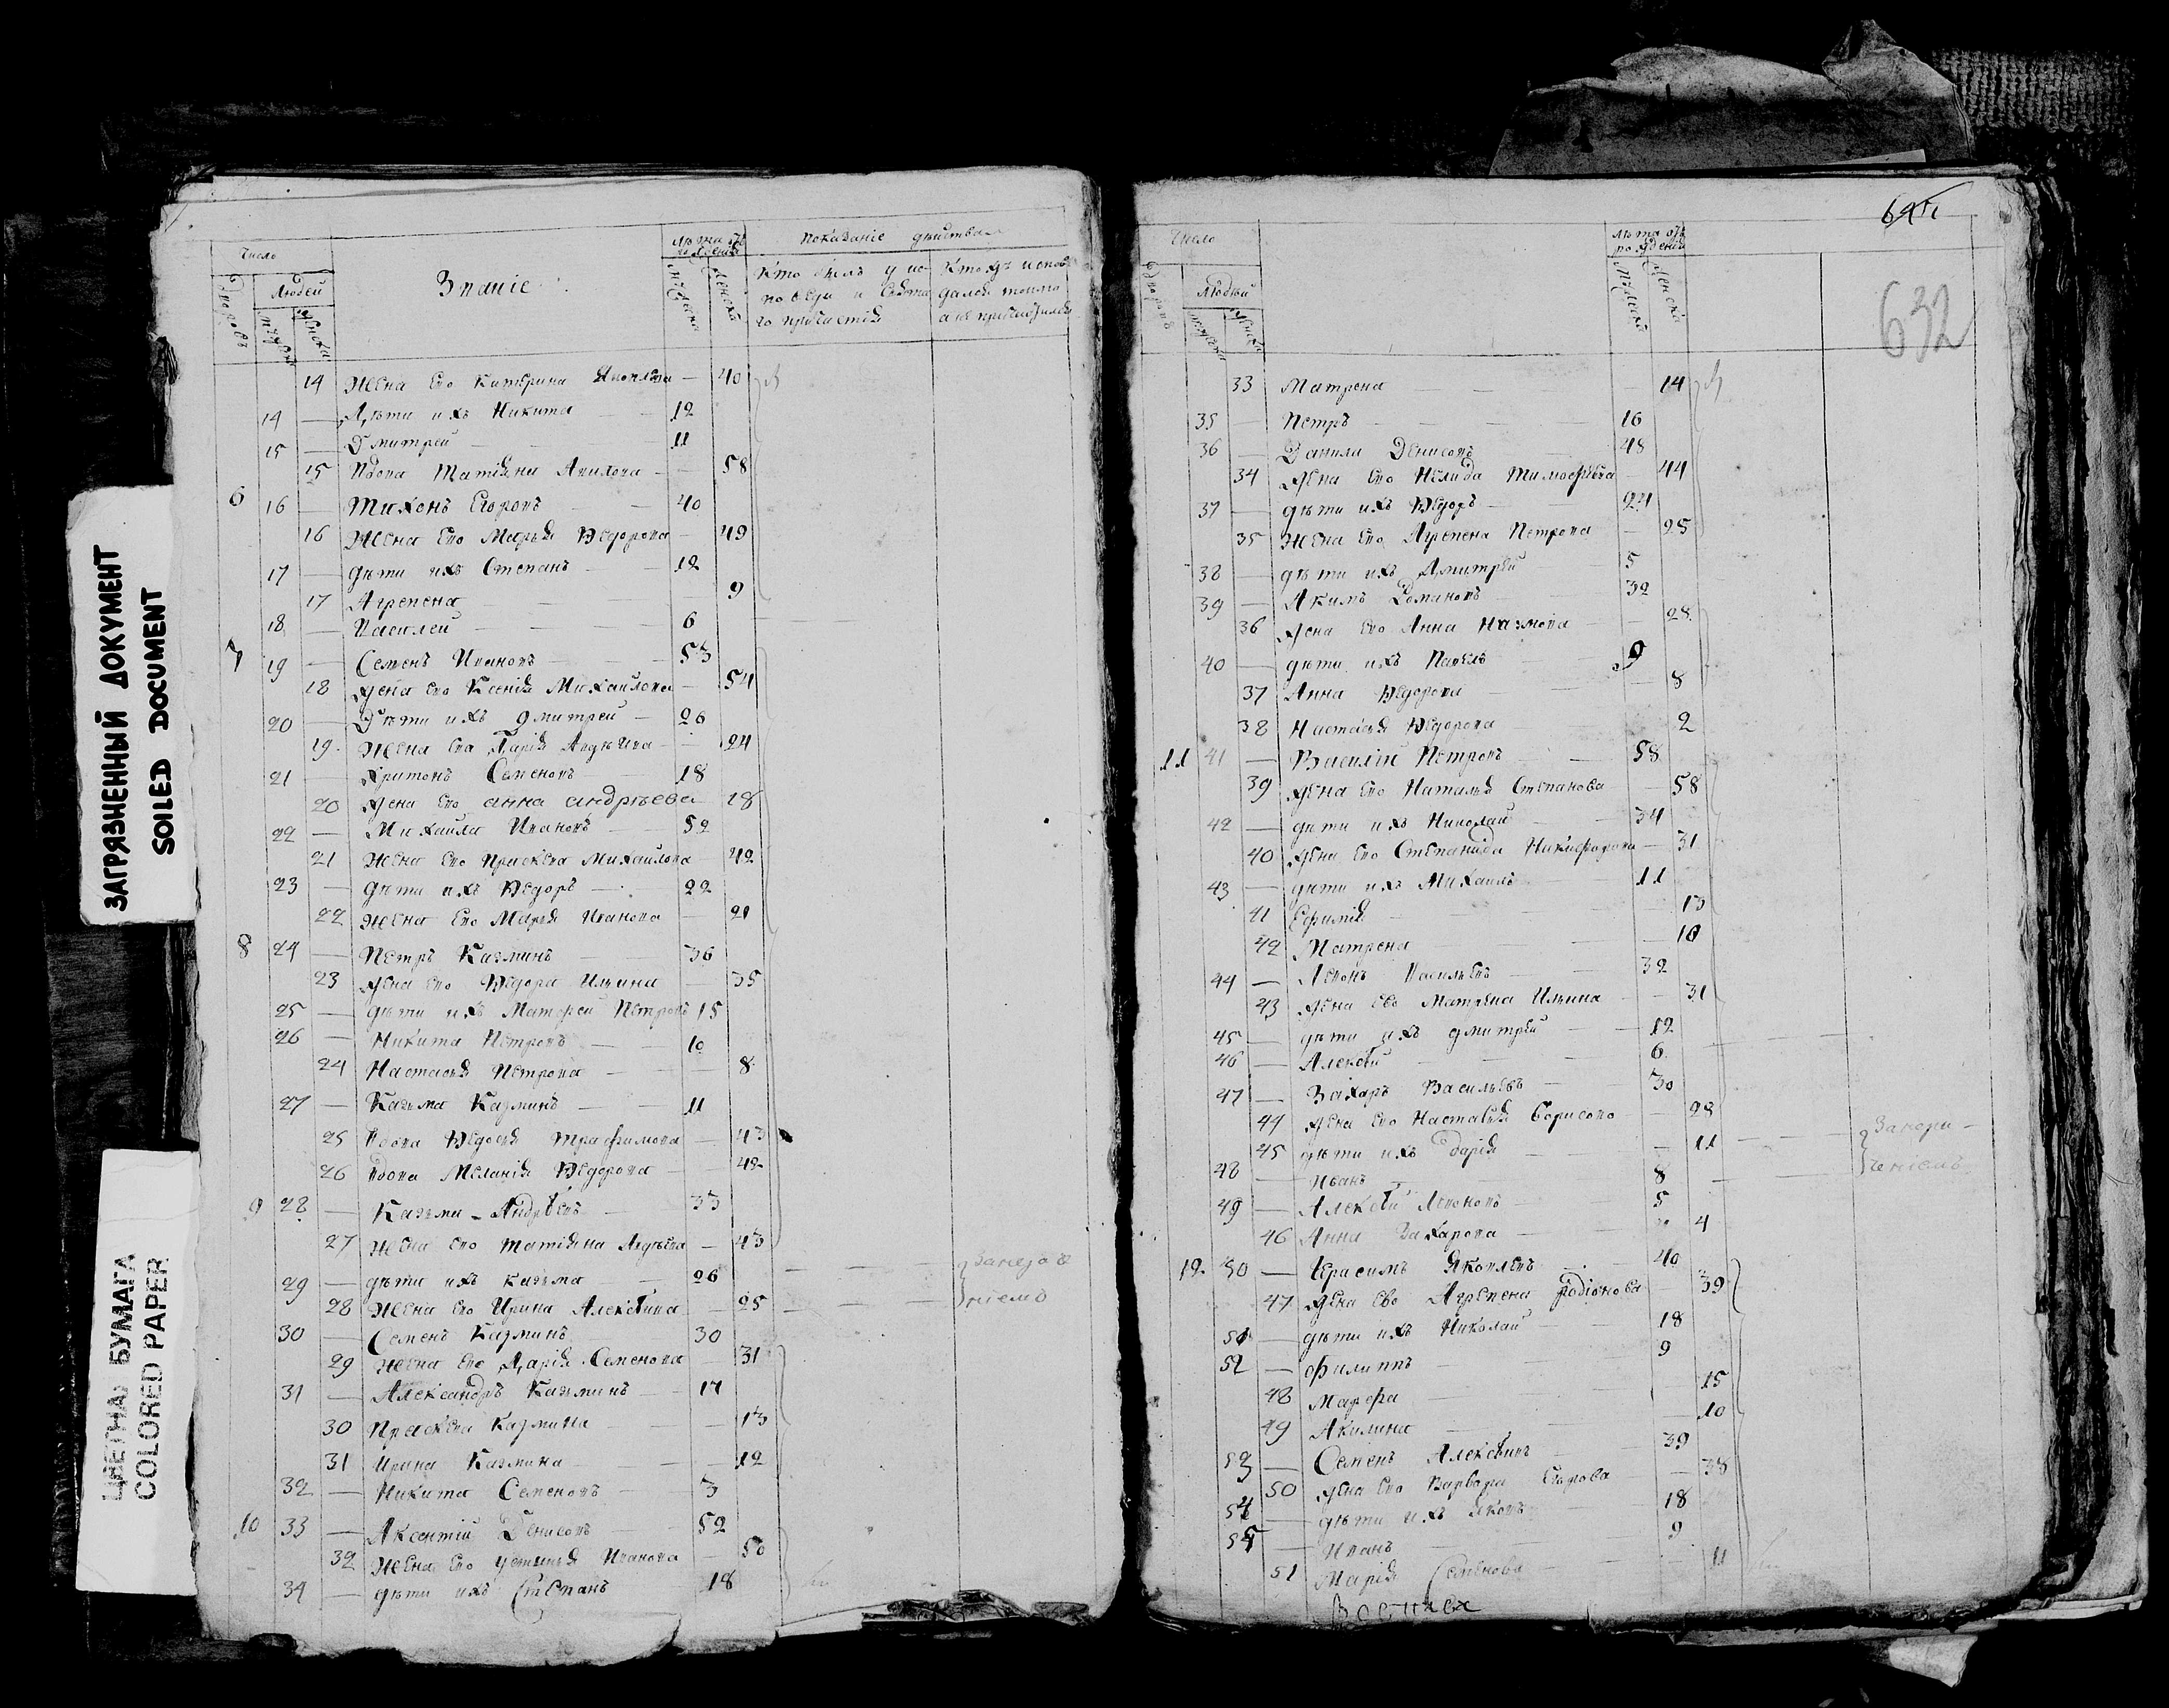 ЗАГРЯЗНЕННЫЙ ДОКУМЕНТ
SOILED DOCUMENT
ЦВЕТНАЯ БУМАГА
COLORED PAPER
Число
Дворовъ
Людей
Званіе
Лѣта отъ рожденія
Показаніе дѣйства
Кто былъ у исповѣди и святаго причастія
Кто же исповѣдался токмо а не причастился
14 Жена его Катерина Яковлева — 40
14 — Дѣти ихъ Никита — 12
15 — Дмитрей — 11
15 Вдова Татіяна — 58
6 16 — Тихонъ Егоровъ — 40
16 Жена его Марья Ѳедорова — 49
17 — дѣти ихъ Степанъ — 12
17 Агрепена — 9
18 — Василей — 6
7 19 — Семенъ Ивановъ — 53
18 Жена его Ксенія Михайлова — 54
20 — Дѣти ихъ Дмитрей — 26
19 Жена его Дарія Авдѣева — 24
21 — Харитонъ Семеновъ — 18
20 Жена его анна андрѣева — 18
22 — Михайла Ивановъ — 52
21 Жена его Прасковa Михайлова — 42
23 — дѣти ихъ Ѳедоръ — 22
22 Жена его Марья Иванова — 21
8 24 — Петръ Казминъ — 36
23 Жена его Ѳедора Ильина — 35
25 — дѣти ихъ Матфей Петровъ 15
26 — Никита Петровъ — 10
24 Настасья Петрова — 8
27 — Казьма Казминъ — 11
25 Вдова Ѳедосья Трафимова — 43
26 Вдова Меланія Ѳедорова — 42
9 28 — Казьма Андрѣевъ — 33
27 Жена его Татіяна Авдѣева — 43
29 — дѣти ихъ казьма — 26
28 Жена его Ирина Алексѣева — 25
30 — Семенъ Казминъ 30
29 Жена его Дарія Семенова — 31
31 — Александръ Казьминъ — 17
30 Прасковa Казмина — 13
31 Ирина Казмина — 12
32 — Никита Семеновъ — 3
10 33 — Аксентій Денисовъ — 52
32 Жена его устинья Иванова — 50
34 — дѣти ихъ Степанъ 18
Число
Дворовъ
Людей
Лѣта отъ рожденія
632
33 Матрена — 14
35 — Петръ — 16
36 — Данила Денисовъ 48
34 Жена его Тимофѣева — 44
37 — дѣти ихъ Ѳедоръ — 24
35 Жена его Агрепена Петрова — 25
38 — дѣти ихъ Дмитрей 5
39 — Акимъ Романовъ 32
36 Жена его Анна — 28
40 — дѣти ихъ Павелъ 9
37 Анна Ѳедорова — 8
38 Настасья Ѳедорова — 2
11 41 — Василій Петровъ — 58
39 Жена его Наталья Степанова — 58
42 — дѣти ихъ Николай — 34
40 Жена его Степанида Никифорова — 31
43 — дѣти ихъ Михаилъ 11
41 Ефимія — 13
42 Матрена — 10
44 — Леонъ Васильевъ 32
43 Жена ево Матрена Ильина — 31
45 — дѣти ихъ дмитрей — 12
46 — Алексѣй — 6
47 — Захаръ Васильевъ — 30
44 Жена его Настасья Борисово — 28
45 дѣти ихъ дарія — 11
48 — Иванъ 8
49 — Алексѣй Леоновъ — 5
46 Анна Захарова — 4
12 50 — Герасимъ Яковлевъ 40
47 Жена ево Агрепена Родіонова 39
51 — дѣти ихъ Николай 18
52 — Филиппъ 9
48 Марфа — 15
49 Акилина — 10
53 — Семенъ Алексѣевъ 39
50 Жена его Варвара Егорова — 38
54 — дѣти ихъ яковъ 18
55 — Иванъ 9
51 Марія Семенова — 11